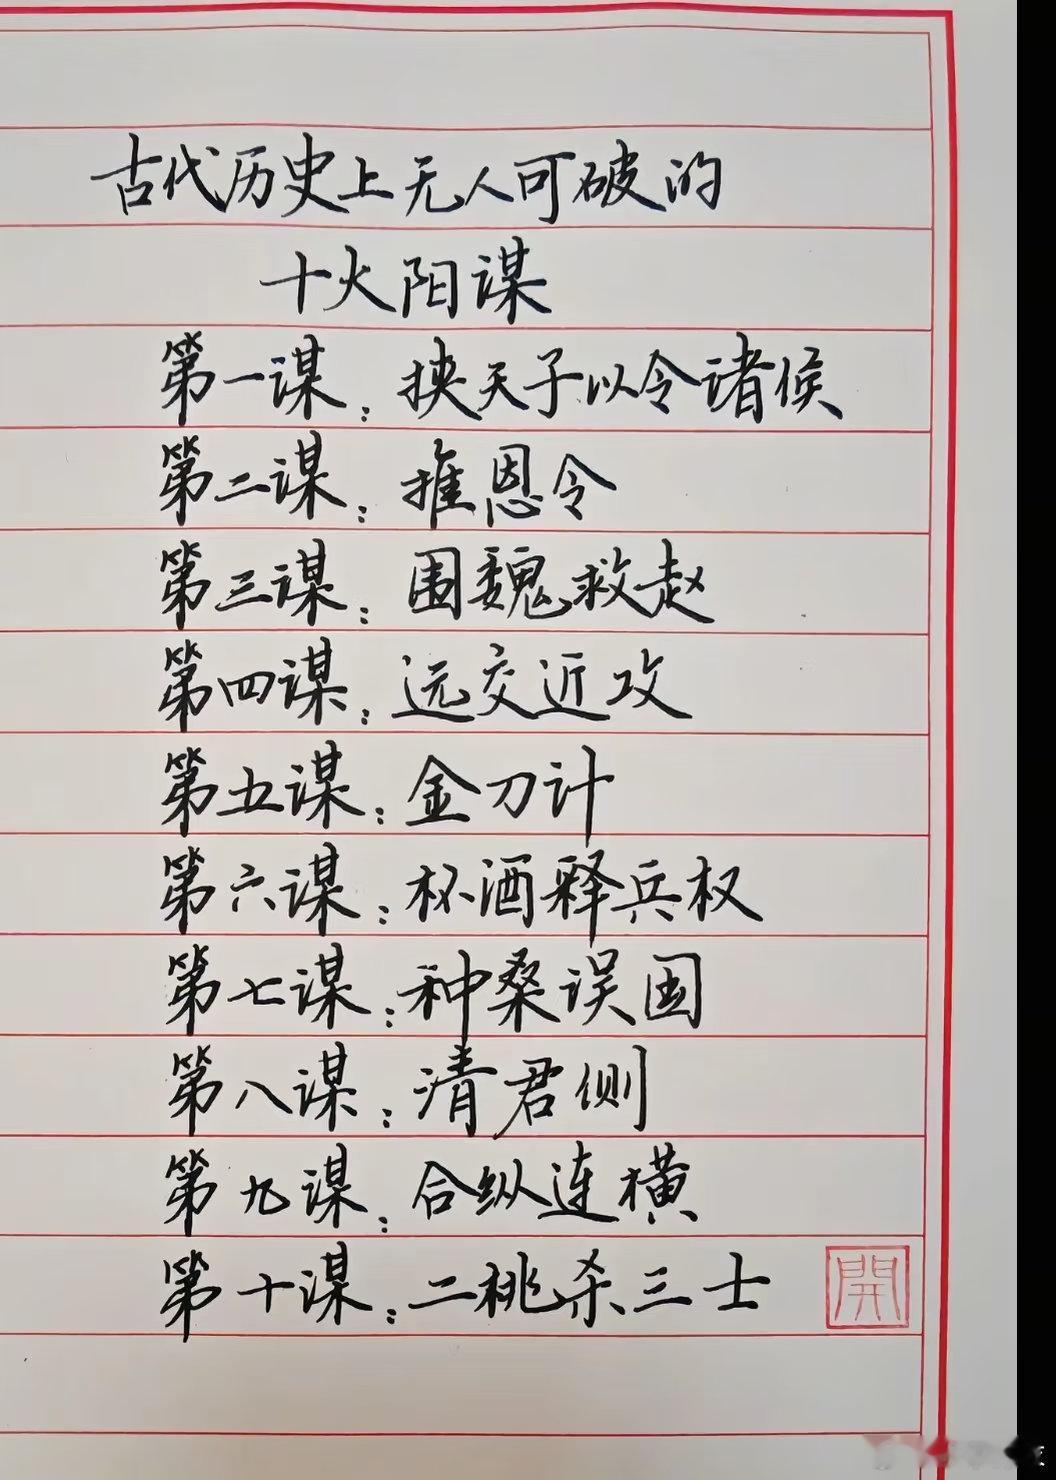 古代历史上无人可破的
十大阳谋
第一谋：挟天子以令诸侯
第二谋：推恩令
第三谋：围魏救赵
第四谋：远交近攻
第五谋：金刀计
第六谋：杯酒释兵权
第七谋：种桑误国
第八谋：清君侧
第九谋：合纵连横
第十谋：二桃杀三士
開